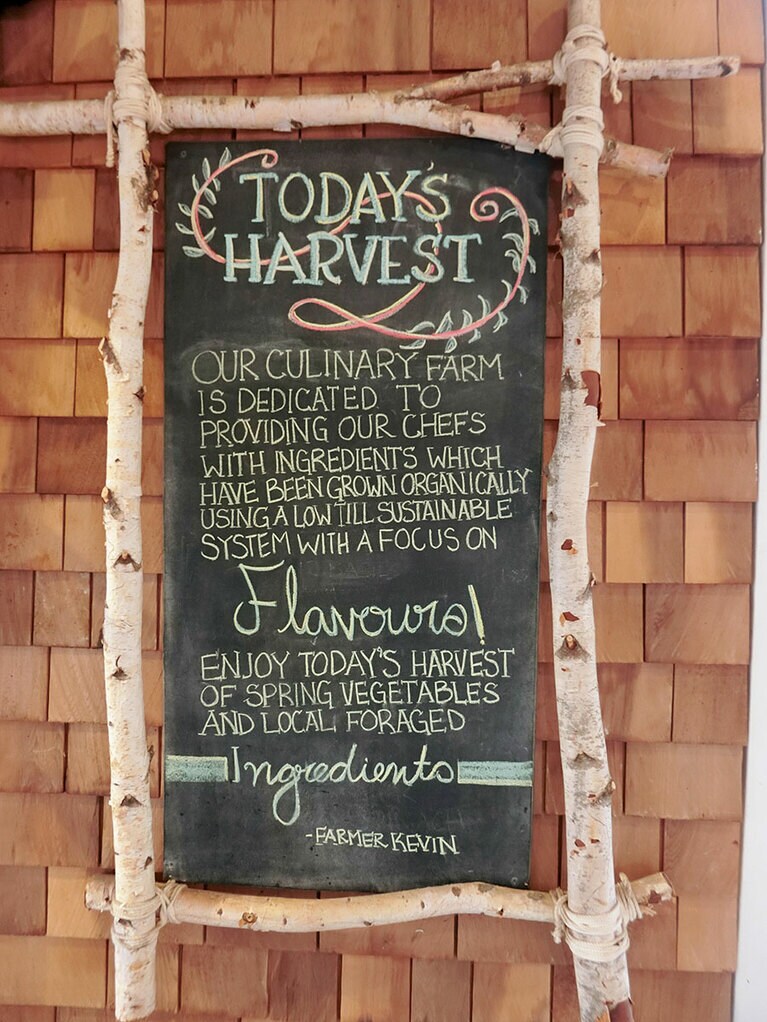 TODAY'S
HARVEST
OUR CULINARY FARM
IS DEDICATED TO
PROVIDING OUR CHEFS
WITH INGREDIENTS WHICH
HAVE BEEN GROWN ORGANICALLY
USING A LOW TILL SUSTAINABLE
SYSTEM WITH A FOCUS ON
Flavours!
ENJOY TODAY'S HARVEST
OF SPRING VEGETABLES
AND LOCAL FORAGED
Ingredients
-FARMER KEVIN